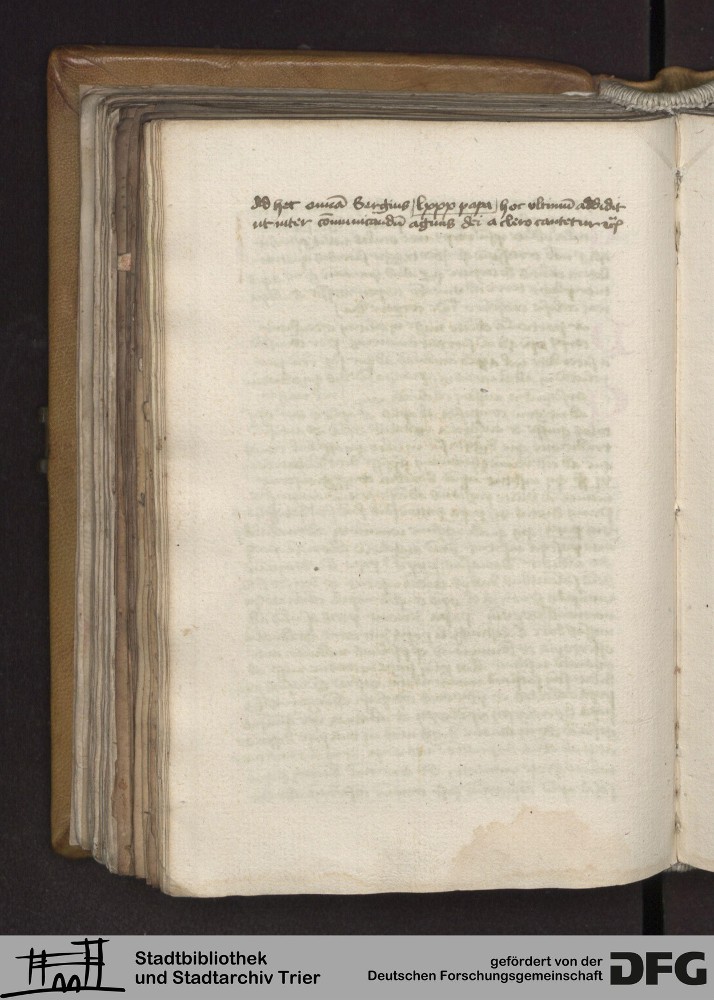 Ad hec om̅ia̅ Sergius lxxx papa hoc ultimu̅ addidit
ut inter co̅municandu̅ agnus dei a clero cantetur
Stadtbibliothek
und Stadtarchiv Trier
gefördert von der
Deutschen Forschungsgemeinschaft
DFG